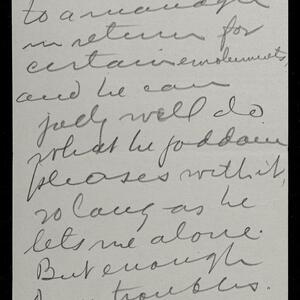 to a manager
in return for
certain emoluments,
and he can
jolly well do
what he goddam
pleases with it,
so long as he
lets me alone.
But enough
troubles.